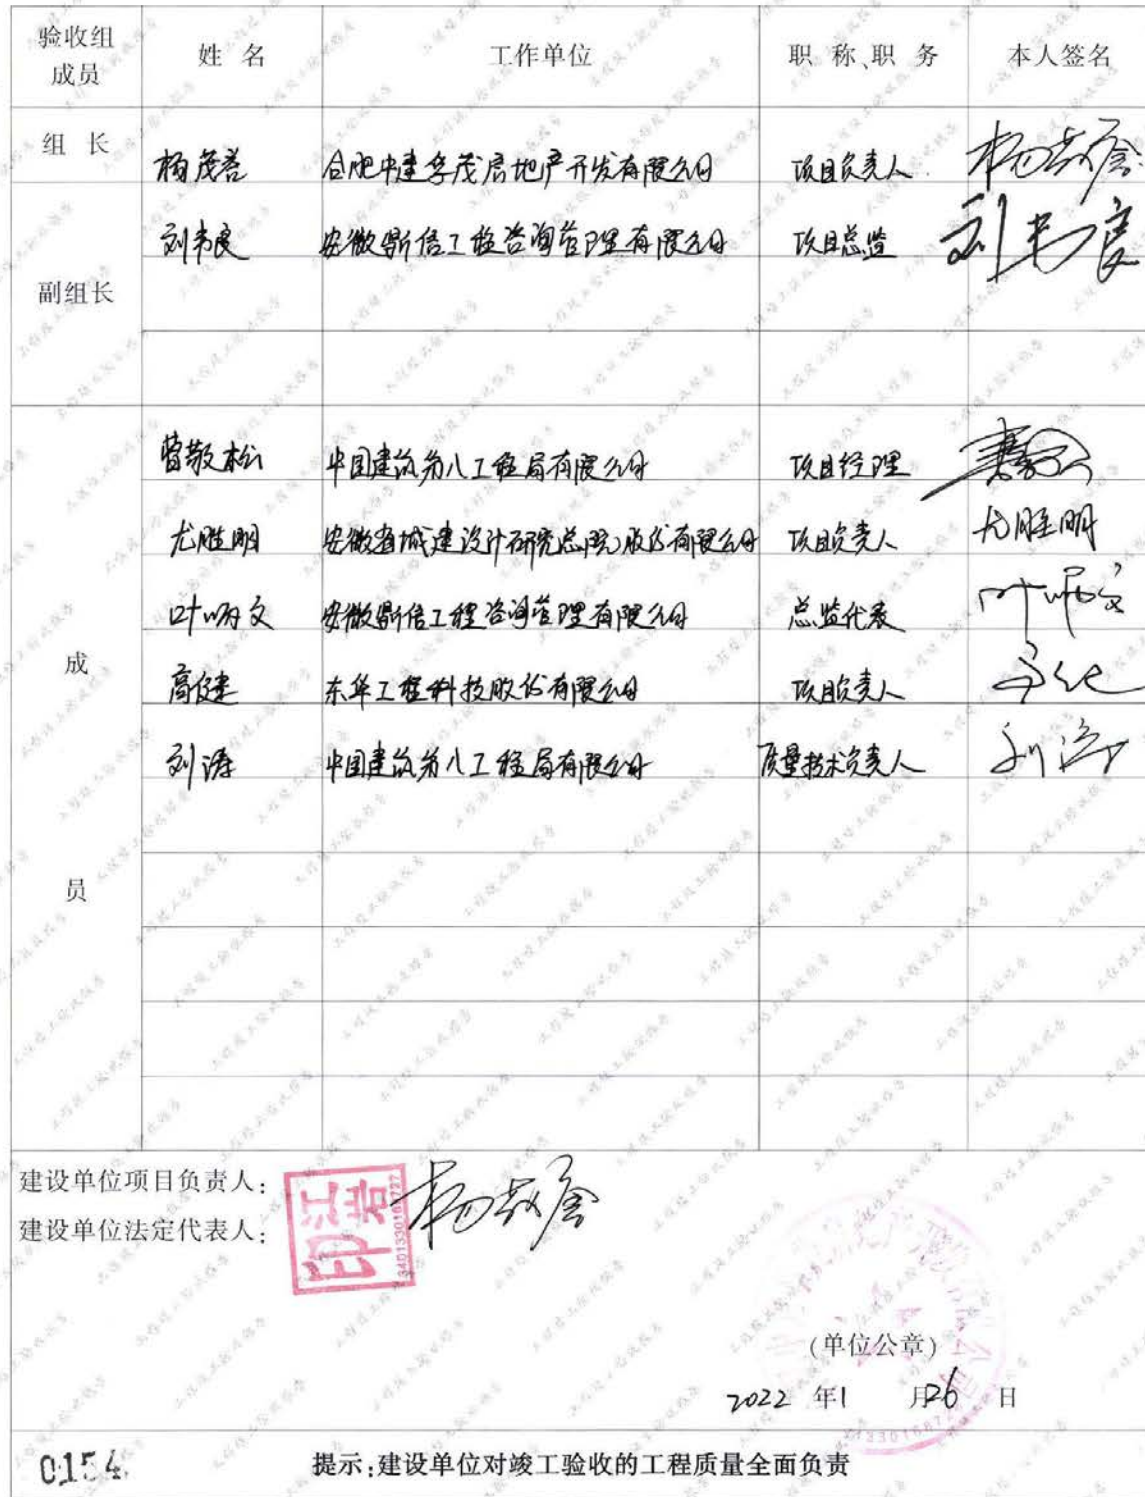 验收组成员 姓 名 工作单位 职 称、职 务 本人签名
组 长 合肥中建孚茂房地产开发有限公司 项目负责人
刘韦良 安徽鼎信工程咨询管理有限公司 项目总监 刘韦良
副组长
曹敬松 中国建筑第八工程局有限公司 项目经理
尤胜明 安徽省城建设计研究总院股份有限公司 项目负责人 尤胜明
叶炳文 安徽鼎信工程咨询管理有限公司 总监代表 叶炳文
成
高健 东华工程科技股份有限公司 项目负责人
刘涛 中国建筑第八工程局有限公司 质量技术负责人 刘涛
员
建设单位项目负责人:
建设单位法定代表人:
江岩印
(单位公章)
2022 年1 月26 日
0154
提示:建设单位对竣工验收的工程质量全面负责